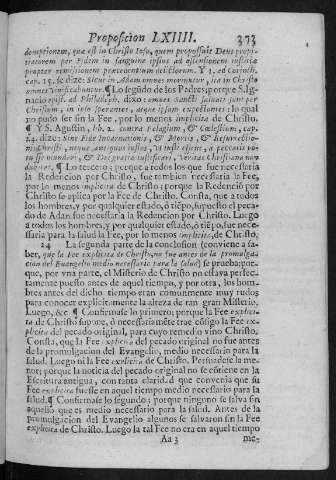 Proposicion LXIIII. 373
demptionem, quæ est in Christo Iesu, quem proposuit Deus propi-
tiatorem per Fidem in sanguine ipsius ad ostensionem iustitiæ
propter remissionem præcedentium delictorum. Y 1. ad Corinth.
cap. 15. se dize: Sicut in Adam omnes moriuntur, ita in Christo
omnes vivificabuntur. ¶ Lo segũdo de los Padres; porque S. Ig-
nacio epist. ad Philadelph. dixo: omnes Sancti salvati sunt per
Christum, in ipso sperantes, atque ipsum expectantes: lo qual
no pudo ser sin la Fee, por lo menos implicita de Christo.
¶ Y S. Agustin, lib. 2. contra Pelagium, & Cœlestium, cap.
24. dize: Sine Fide Incarnationis, & Mortis, & Resurrectio-
nis Christi, neque antiquos iustos, vt iusti essent, a peccatis po-
tuisse mundari, & Dei gratia iustificari, Veritas Christiana non
dubitat. ¶ Lo tercero; porque a todos los que fue necessaria
la Redencion por Christo, fue tambien necessaria la Fee,
por lo menos implicita de Christo; porque la Redenciõ por
Christo se aplica por la Fee de Christo. Consta, que a todos
los hombres, y por qualquier estado, ò tiẽpo, supuesto el peca-
do de Adan, fue necessaria la Redencion por Christo. Luego
a todos los hombres, y por qualquier estado, ò tiẽpo, fue neces-
saria para la salud la Fee, por lo menos implicita, de Christo.
24 La segunda parte de la conclusion (conviene a sa-
ber, que la Fee explicita de Christo, no fue antes de la promulga-
cion del Euangelio medio necessario para la salud) se prueba; por-
que, por vna parte, el Misterio de Christo no estava perfec-
tamente puesto antes de aquel tiempo, y por otra, los hom-
bres antes del dicho tiempo eran comunmente muy rudos
para conocer explicitamente la alteza de tan gran Misterio.
Luego, &c. ¶ Confirmase lo primero; porque la Fee explici-
ta de Christo supone, ò necessariamẽte trae cõsigo la Fee ex-
plicita del pecado original, para cuyo remedio vino Christo.
Consta, que la Fee explicita del pecado original no fue antes
de la promulgacion del Evangelio, medio necessario para la
salud. Luego ni la Fee explicita de Christo. Persuadese la me-
nor; porque la noticia del pecado original no se cõtiene en la
Escritura antigua, con tanta clarid.d que convenia que su
Fee explicita fuesse en aquel tiempo medio necessario para la
salud. ¶ Confirmase lo segundo; porque ninguno se salva sin
aquello que es medio necessario para la salud. Antes de la
promulgacion del Evangelio algunos se salvaron sin la Fee
explicita de Christo. Luego la tal Fee no era en aquel tiempo
Aa 3 me-